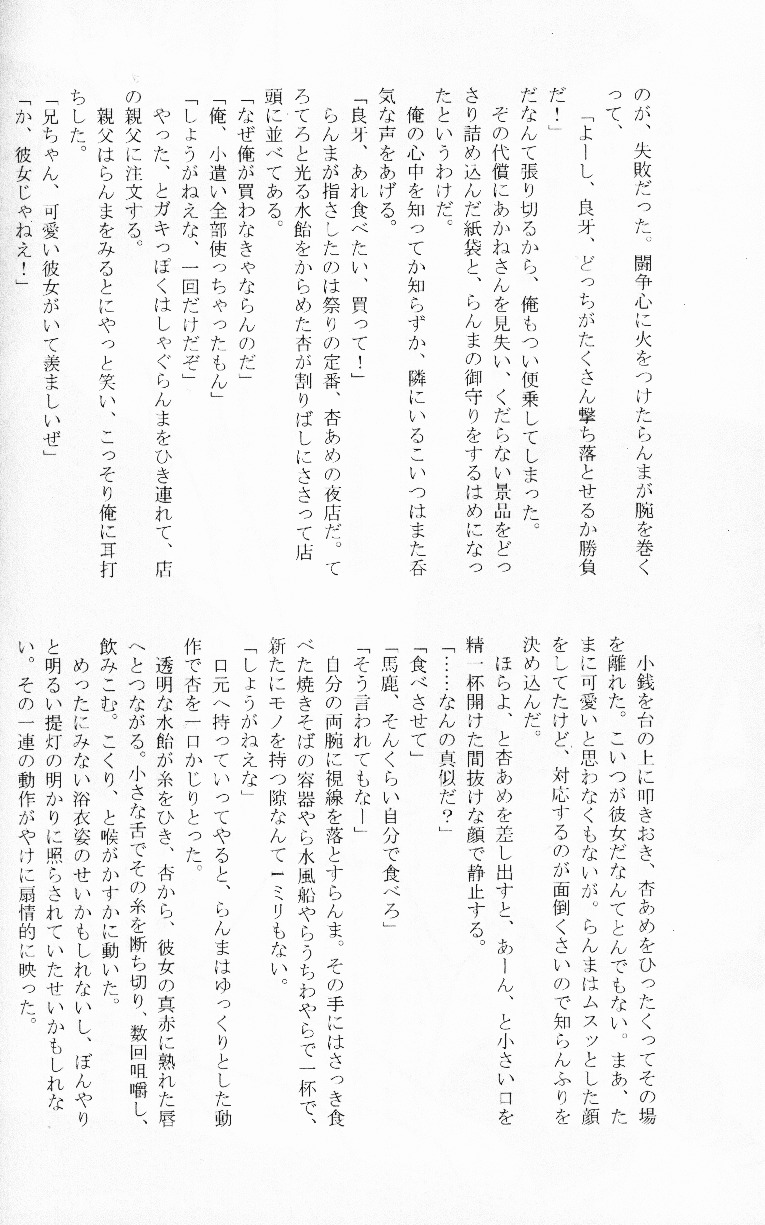 のが、失敗だった。闘争心に火をつけたらんまが腕を巻く
って、
「よーし、良牙、どっちがたくさん撃ち落とせるか勝負
だ！」
だなんて張り切るから、俺もつい便乗してしまった。
その代償にあかねさんを見失い、くだらない景品をどっ
さり詰め込んだ紙袋と、らんまの御守りをするはめになっ
たというわけだ。
俺の心中を知ってか知らずか、隣にいるこいつはまた呑
気な声をあげる。
「良牙、あれ食べたい、買って！」
らんまが指さしたのは祭りの定番、杏あめの夜店だ。て
ろてろと光る水飴をからめた杏が割りばしにささって店
頭に並べてある。
「なぜ俺が買わなきゃならんのだ」
「俺、小遣い全部使っちゃったもん」
「しょうがねえな、一回だけだぞ」
やった、とガキっぽくはしゃぐらんまをひき連れて、店
の親父に注文する。
親父はらんまをみるとにやっと笑い、こっそり俺に耳打
ちした。
「兄ちゃん、可愛い彼女がいて羨ましいぜ」
「か、彼女じゃねえ！」
小銭を台の上に叩きおき、杏あめをひったくってその場
を離れた。こいつが彼女だなんてとんでもない。まあ、た
まに可愛いと思わなくもないが。らんまはムスッとした顔
をしてたけど、対応するのが面倒くさいので知らんふりを
決め込んだ。
ほらよ、と杏あめを差し出すと、あーん、と小さい口を
精一杯開けた間抜けな顔で静止する。
「……なんの真似だ？」
「食べさせて」
「馬鹿、そんくらい自分で食べろ」
「そう言われてもなー」
自分の両腕に視線を落とすらんま。その手にはさっき食
べた焼きそばの容器やら水風船やらうちわやらで一杯で、
新たにモノを持つ隙なんて１ミリもない。
「しょうがねえな」
口元へ持っていってやると、らんまはゆっくりとした動
作で杏を一口かじりとった。
透明な水飴が糸をひき、杏から、彼女の真赤に熟れた唇
へとつながる。小さな舌でその糸を断ち切り、数回咀嚼し、
飲みこむ。こくり、と喉がかすかに動いた。
めったにみない浴衣姿のせいかもしれないし、ぼんやり
と明るい提灯の明かりに照らされていたせいかもしれな
い。その一連の動作がやけに扇情的に映った。